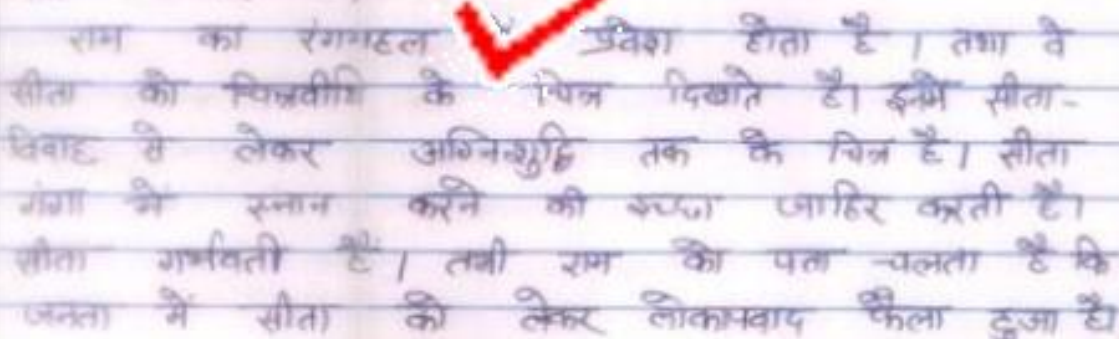 राम का रंगमहल में प्रवेश होता है । तथा वे
सीता को चित्रवीथि के चित्र दिखाते है। इनमें सीता-
विवाह से लेकर अग्निशुद्धि तक के चित्र है। सीता
गंगा में स्नान करने की इच्छा जाहिर करती है।
सीता गर्भवती हैं । तभी राम को पता चलता है कि
जनता में सीता को लेकर लोकापवाद फैला हुआ है।